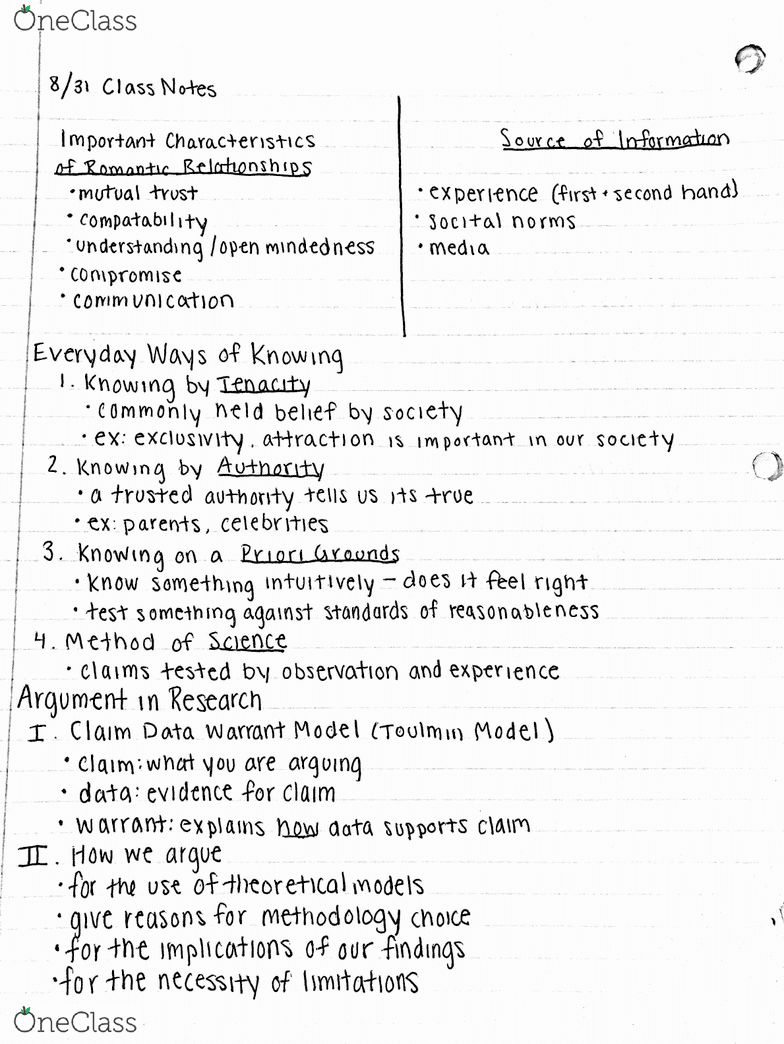 OneClass
8/31 Class Notes
Important Characteristics
of Romantic Relationships
• mutual trust
• compatability
• understanding / open mindedness
• compromise
• communication
Source of Information
• experience (first + second hand)
• socital norms
• media
Everyday Ways of Knowing
1. Knowing by Tenacity
• commonly held belief by society
• ex: exclusivity, attraction is important in our society
2. Knowing by Authority
• a trusted authority tells us its true
• ex: parents, celebrities
3. Knowing on a Priori Grounds
• know something intuitively – does it feel right
• test something against standards of reasonableness
4. Method of Science
• claims tested by observation and experience
Argument in Research
I. Claim Data Warrant Model (Toulmin Model)
• claim: what you are arguing
• data: evidence for claim
• warrant: explains how data supports claim
II. How we argue
• for the use of theoretical models
• give reasons for methodology choice
• for the implications of our findings
• for the necessity of limitations
OneClass